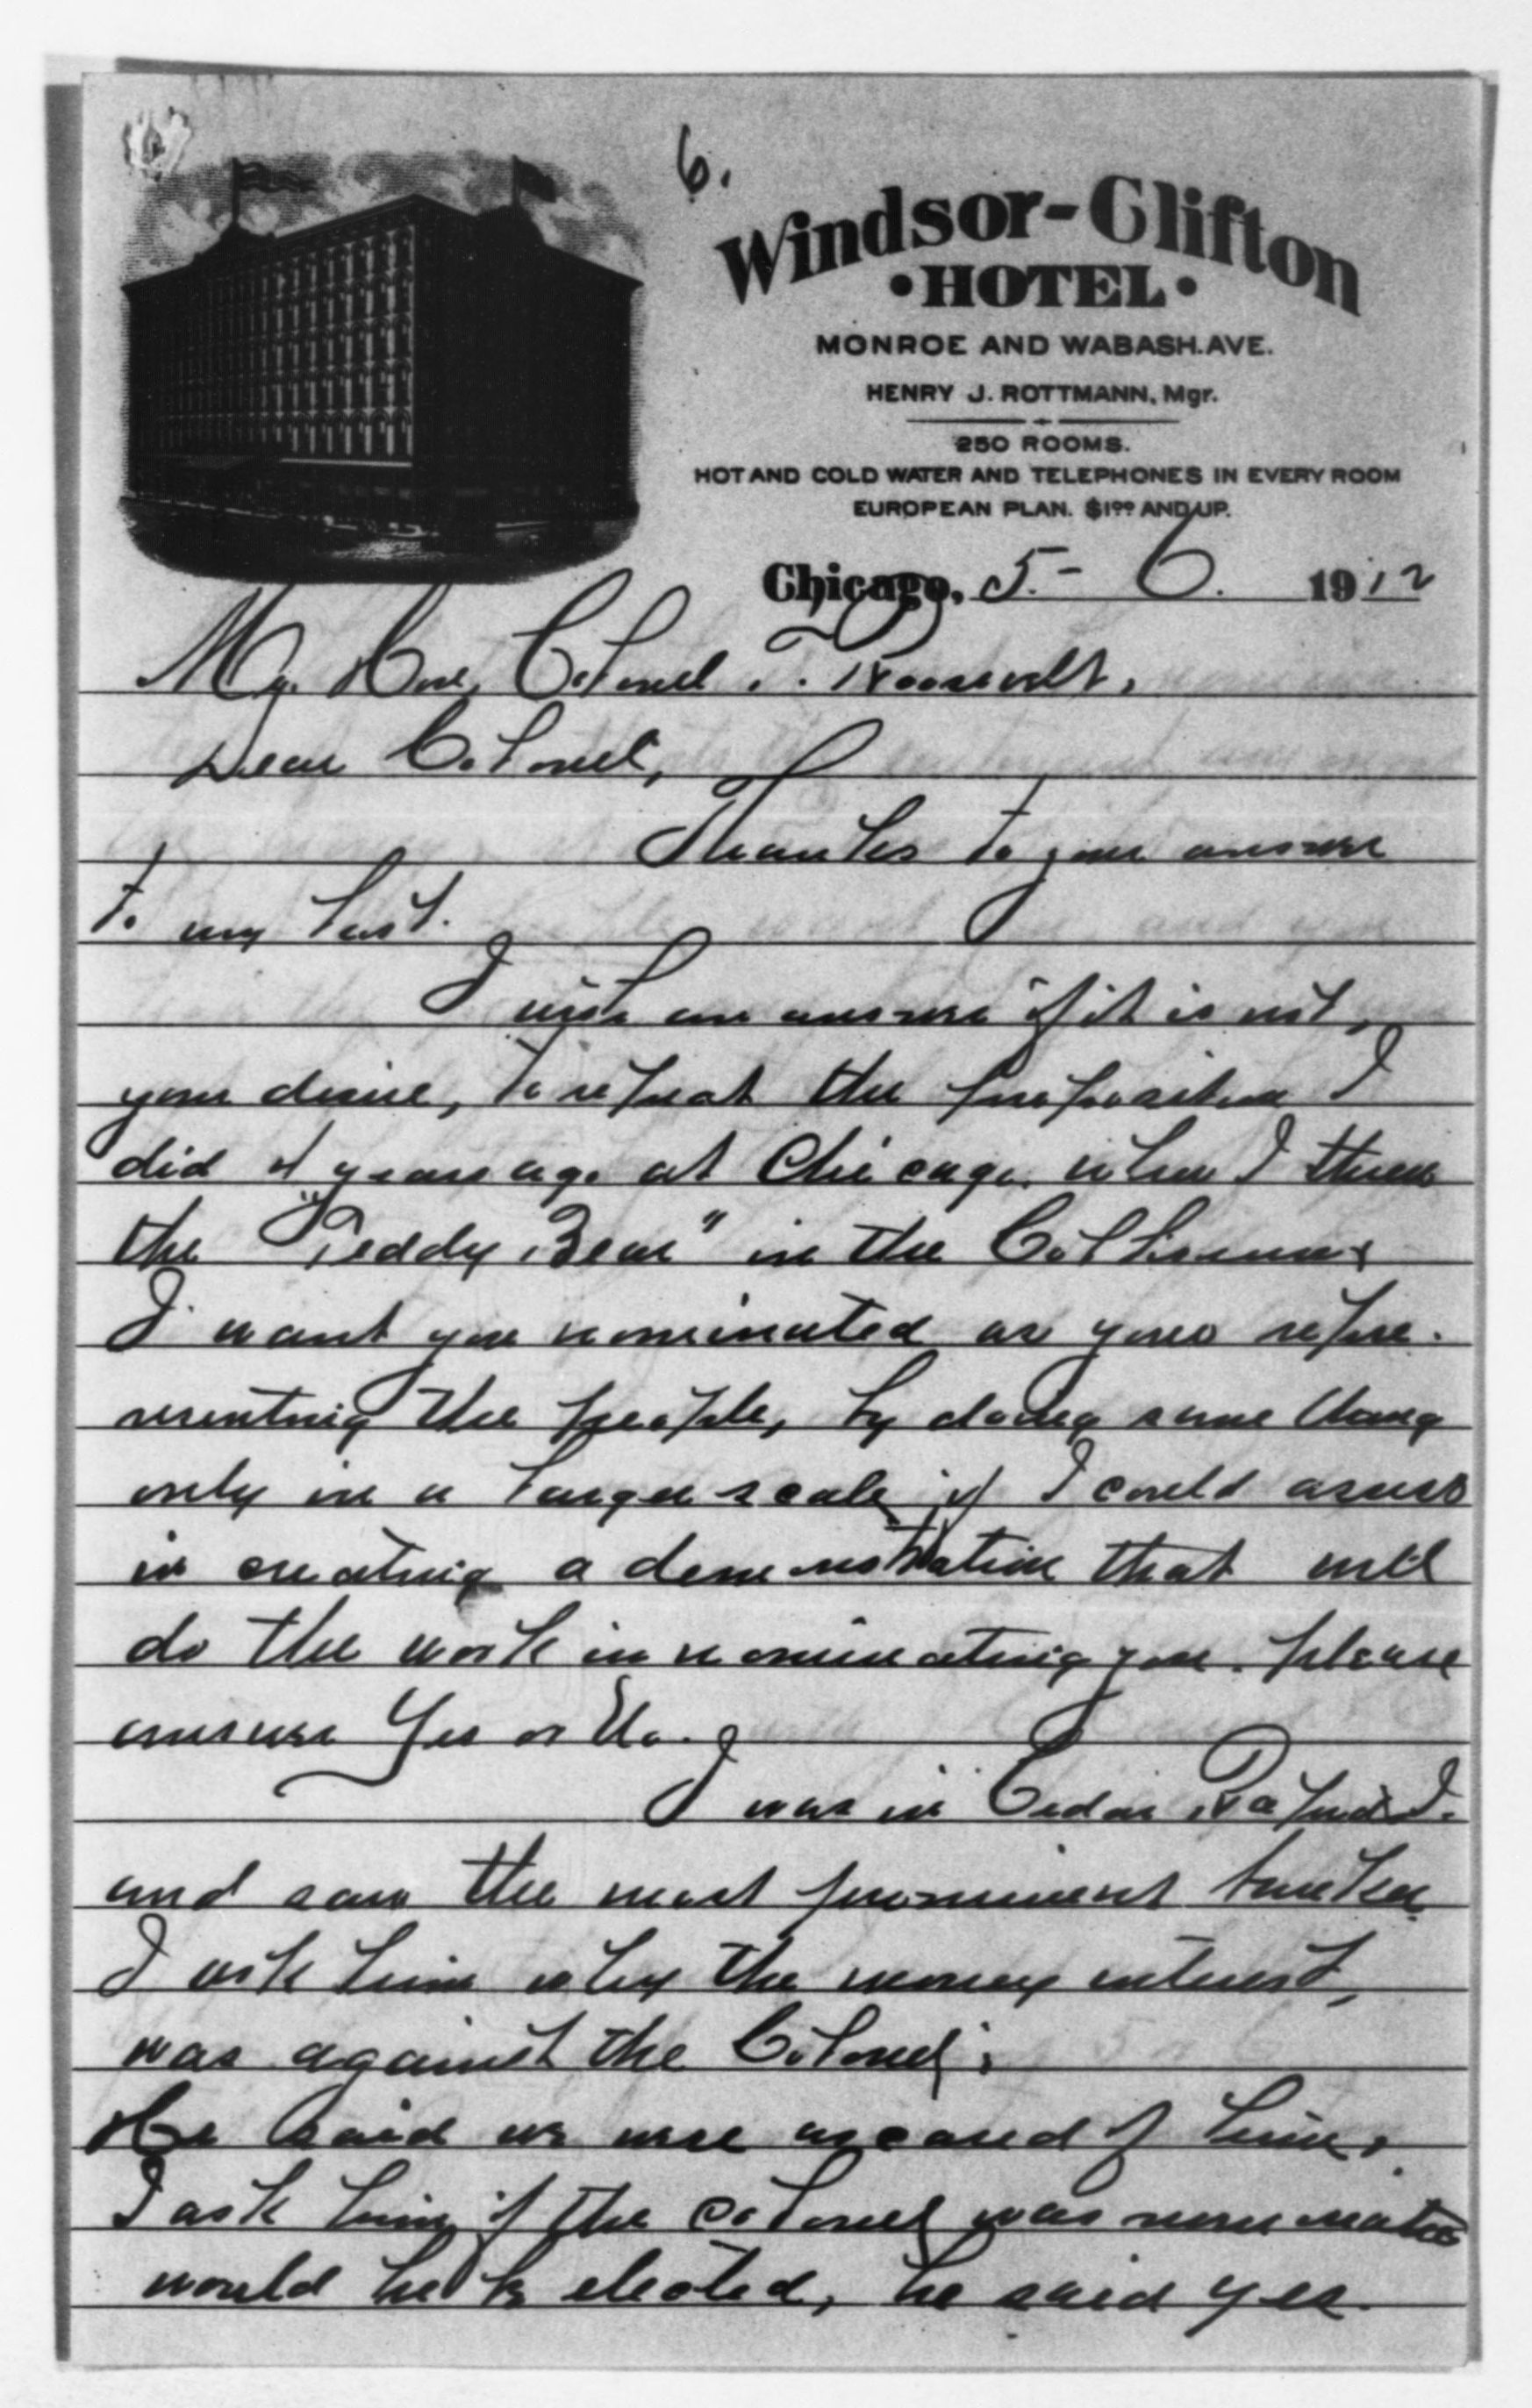 6.
Windsor-Clifton
• HOTEL •
MONROE AND WABASH. AVE.
HENRY J. ROTTMANN, Mgr.
250 ROOMS.
HOT AND COLD WATER AND TELEPHONES IN EVERY ROOM
EUROPEAN PLAN. $1.00 AND UP.
Chicago, 5 - 6. 1912
My Hon, Colonel T. Roosevelt,
Dear Colonel,
Thanks to your answer
to my last.
I wish an answer if it is not,
your desire, to repeat the proposition I
did 4 years ago at Chicago. when I threw
the "Teddy Bear" in the Colliseum,
I want you nominated as your repre-
resentnig the people, by doing same thing
only in a larger scale if I could
in creatnig a demonstration that will
do the work in nominatnig you. please
answer Yes or No.
I was in Cedar Rapids I.
and saw the most prominent banker
I ask him why the money interest,
was against the Colonel;
He said we were of him,
I ask him if the colonel was nominated
would he be elected, he said yes.